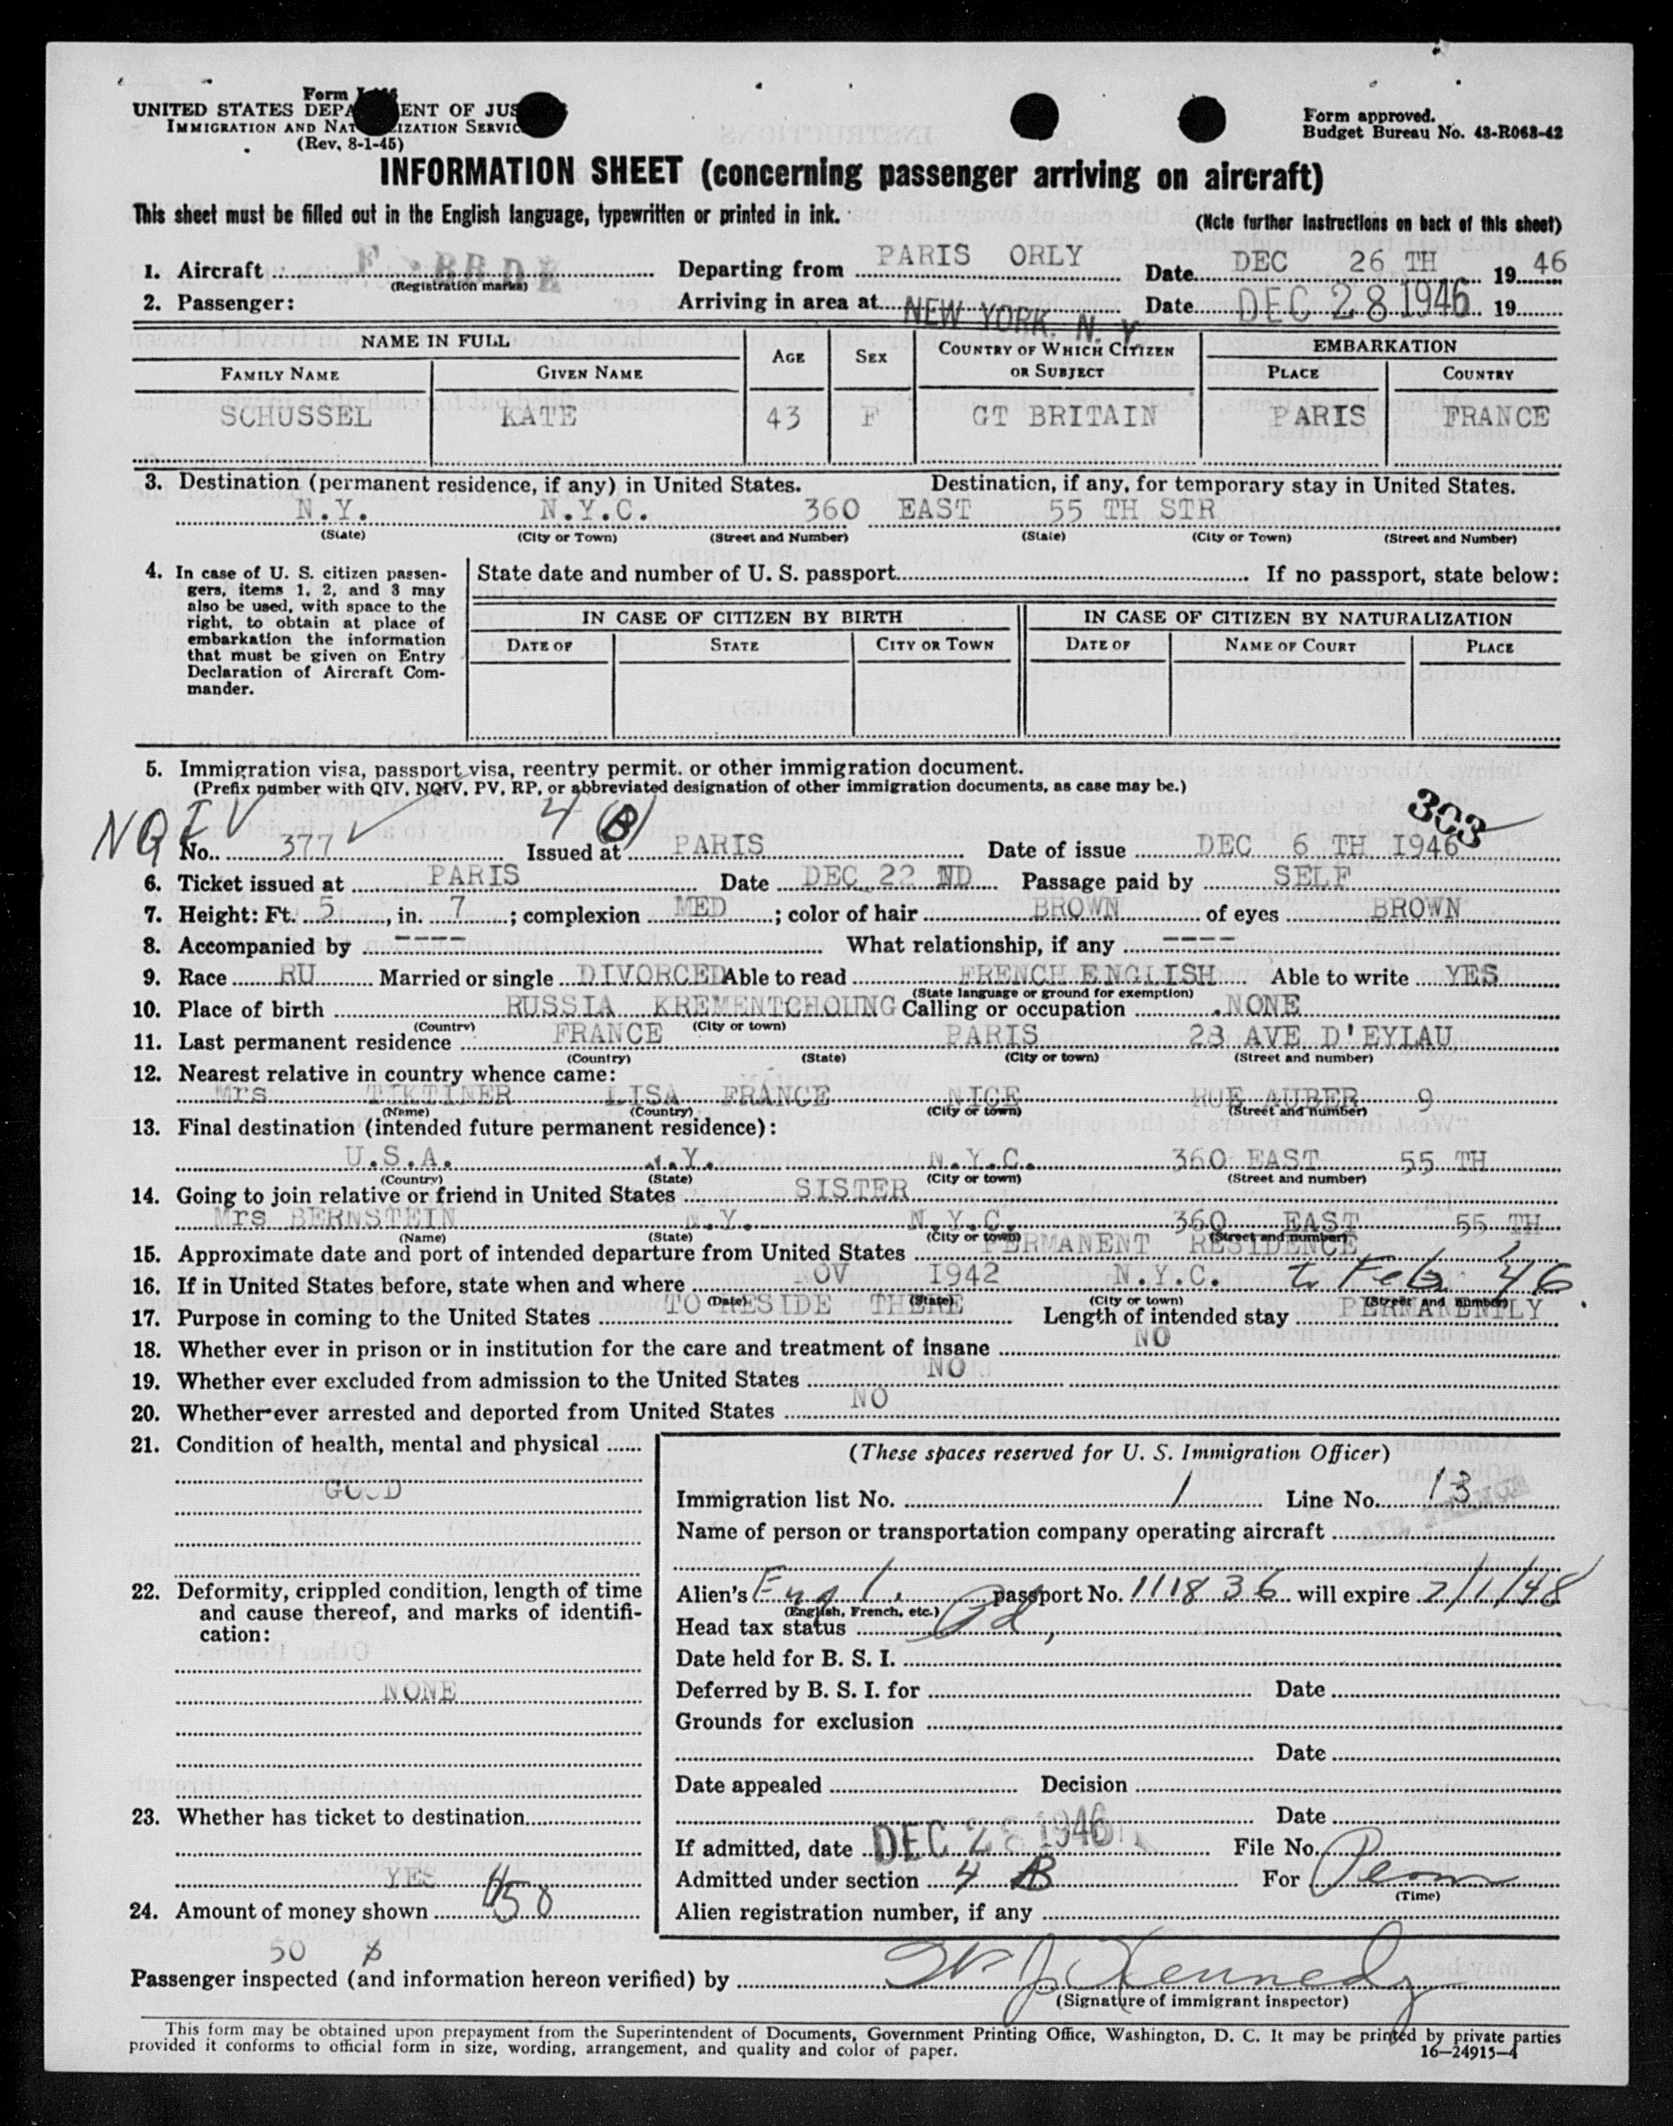 Form
UNITED STATES DEPA ENT OF JUS
IMMIGRATION AND NAT IZATION SERVIC
(Rev. 8-1-45)
Form approved.
Budget Bureau No. 43-R063-42
INFORMATION SHEET (concerning passenger arriving on aircraft)
This sheet must be filled out in the English language, typewritten or printed in ink.
(Note further instructions on back of this sheet)
1. Aircraft Departing from PARIS ORLY Date DEC 26 TH 19 46
(Registration marks)
2. Passenger: Arriving in area at NEW YORK, N. Y. Date DEC 28 1946 19
NAME IN FULL AGE SEX COUNTRY OF WHICH CITIZEN OR SUBJECT EMBARKATION
FAMILY NAME GIVEN NAME PLACE COUNTRY
SCHUSSEL KATE 43 F GT BRITAIN PARIS FRANCE
3. Destination (permanent residence, if any) in United States. Destination, if any, for temporary stay in United States.
N.Y. N.Y.C. 360 EAST 55 TH STR
(State) (City or Town) (Street and Number) (State) (City or Town) (Street and Number)
4. In case of U. S. citizen passen-
gers, items 1, 2, and 3 may
also be used, with space to the
right, to obtain at place of
embarkation the information
that must be given on Entry
Declaration of Aircraft Com-
mander.
State date and number of U. S. passport If no passport, state below:
IN CASE OF CITIZEN BY BIRTH IN CASE OF CITIZEN BY NATURALIZATION
DATE OF STATE CITY OR TOWN DATE OF NAME OF COURT PLACE
5. Immigration visa, passport visa, reentry permit, or other immigration document.
(Prefix number with QIV, NQIV, PV, RP, or abbreviated designation of other immigration documents, as case may be.)
NQIV 4 (B) 303
No. 377 Issued at PARIS Date of issue DEC 6 TH 1946
6. Ticket issued at PARIS Date DEC 22 ND Passage paid by SELF
7. Height: Ft. 5, in. 7; complexion MED; color of hair BROWN of eyes BROWN
8. Accompanied by ---- What relationship, if any ----
9. Race RU Married or single DIVORCED Able to read FRENCH ENGLISH Able to write YES
(State language or ground for exemption)
10. Place of birth RUSSIA KREMENTCHOUNG Calling or occupation NONE
(Country) (City or town)
11. Last permanent residence FRANCE PARIS 28 AVE D'EYLAU
(Country) (State) (City or town) (Street and number)
12. Nearest relative in country whence came:
Mrs TIKTINER LISA FRANCE NICE RUE AUBER 9
(Name) (Country) (City or town) (Street and number)
13. Final destination (intended future permanent residence):
U.S.A. N.Y. N.Y.C. 360 EAST 55 TH
(Country) (State) (City or town) (Street and number)
14. Going to join relative or friend in United States SISTER
Mrs BERNSTEIN N.Y. N.Y.C. 360 EAST 55 TH
(Name) (State) (City or town) (Street and number)
15. Approximate date and port of intended departure from United States PERMANENT RESIDENCE
16. If in United States before, state when and where NOV 1942 N.Y.C. to Feb 46
(Date) (State) (City or town) (Street and number)
17. Purpose in coming to the United States TO RESIDE THERE Length of intended stay PERMANENTLY
18. Whether ever in prison or in institution for the care and treatment of insane NO
19. Whether ever excluded from admission to the United States NO
20. Whether ever arrested and deported from United States NO
21. Condition of health, mental and physical
GOOD
22. Deformity, crippled condition, length of time
and cause thereof, and marks of identifi-
cation:
NONE
23. Whether has ticket to destination
YES
24. Amount of money shown 450
50 $
(These spaces reserved for U. S. Immigration Officer)
Immigration list No. 1 Line No. 13
Name of person or transportation company operating aircraft AIR FRANCE
Alien's Engl. passport No. 111836 will expire 2/1/48
(English, French, etc.)
Head tax status Pd,
Date held for B. S. I.
Deferred by B. S. I. for Date
Grounds for exclusion
Date
Date appealed Decision
Date
If admitted, date DEC 28 1946 File No.
Admitted under section 4 B For Perm
(Time)
Alien registration number, if any
Passenger inspected (and information hereon verified) by W J Kennedy
(Signature of immigrant inspector)
This form may be obtained upon prepayment from the Superintendent of Documents, Government Printing Office, Washington, D. C. It may be printed by private parties
provided it conforms to official form in size, wording, arrangement, and quality and color of paper.
16—24915-4